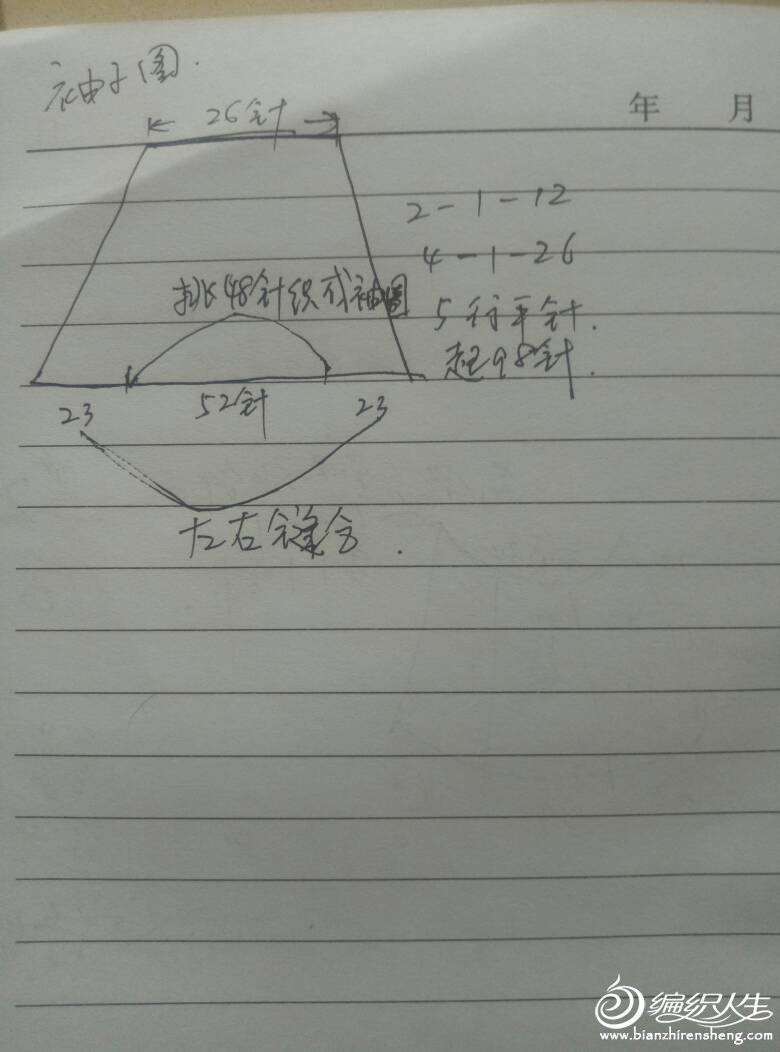 袖子图.
年 月
26针
2-1-12
4-1-26
挑48针织成袖圈
5行平针.
起98针.
23 52针 23
左右缝合.
编织人生
www.bianzhirensheng.com